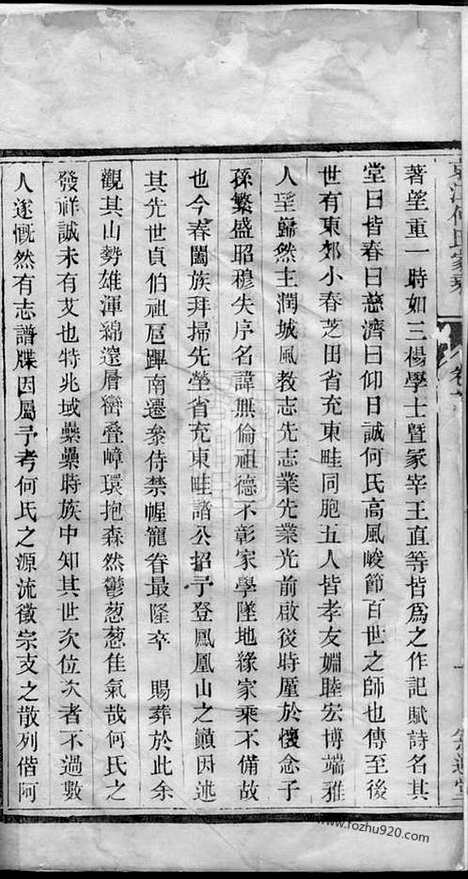 著望重一時如三楊學士暨冢宰王直等皆爲之作記賦詩名其
堂曰皆春曰慈濟曰仰日誠何氏高風峻節百世之師也傳至後
世有東郊小春芝田省充東畦同胞五人皆孝友婣睦宏博端雅
人望歸然主潤城風教志先志業先業光前啟後時厪於懷念子
孫繁盛昭穆失序名諱無倫祖德不彰家學墜地緣家乘不備故
也今春闔族拜掃先塋省充東畦諸公招予登鳳凰山之巔因述
其先世貞伯祖扈蹕南遷叅侍禁幄寵眷最隆卒 賜葬於此余
觀其山勢雄渾綿遠層巒叠嶂環抱森然鬱葱葱佳氣哉何氏之
發祥誠未有艾也特兆域纍纍時族中知其世次位次者不過數
人遂慨然有志譜牒因屬予考何氏之源流徵宗支之散列偕阿
www.fozhu920.com